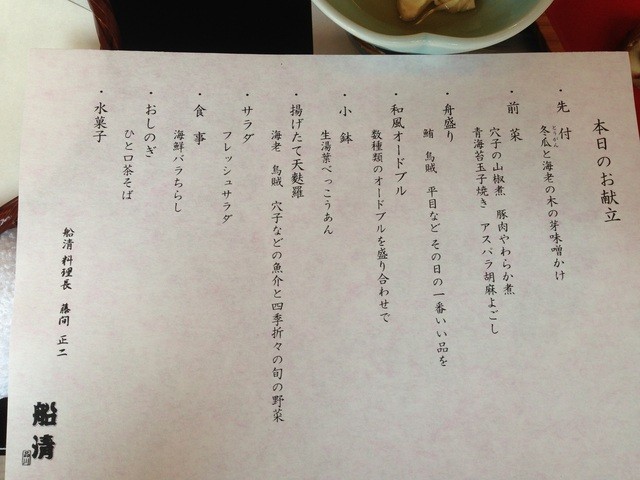 本日のお献立
・先 付
とうがん
冬瓜と海老の木の芽味噌かけ
・前 菜
穴子の山椒煮 豚肉やわらか煮
青海苔玉子焼き アスパラ胡麻よごし
・舟盛り
鮪 烏賊 平目など その日の一番いい品を
・和風オードブル
数種類のオードブルを盛り合わせで
・小 鉢
生湯葉べっこうあん
・揚げたて天麩羅
海老 烏賊 穴子などの魚介と四季折々の旬の野菜
・サラダ
フレッシュサラダ
・食 事
海鮮バラちらし
・おしのぎ
ひと口茶そば
・水菓子
船清 料理長 藤間 正二
船清
品川